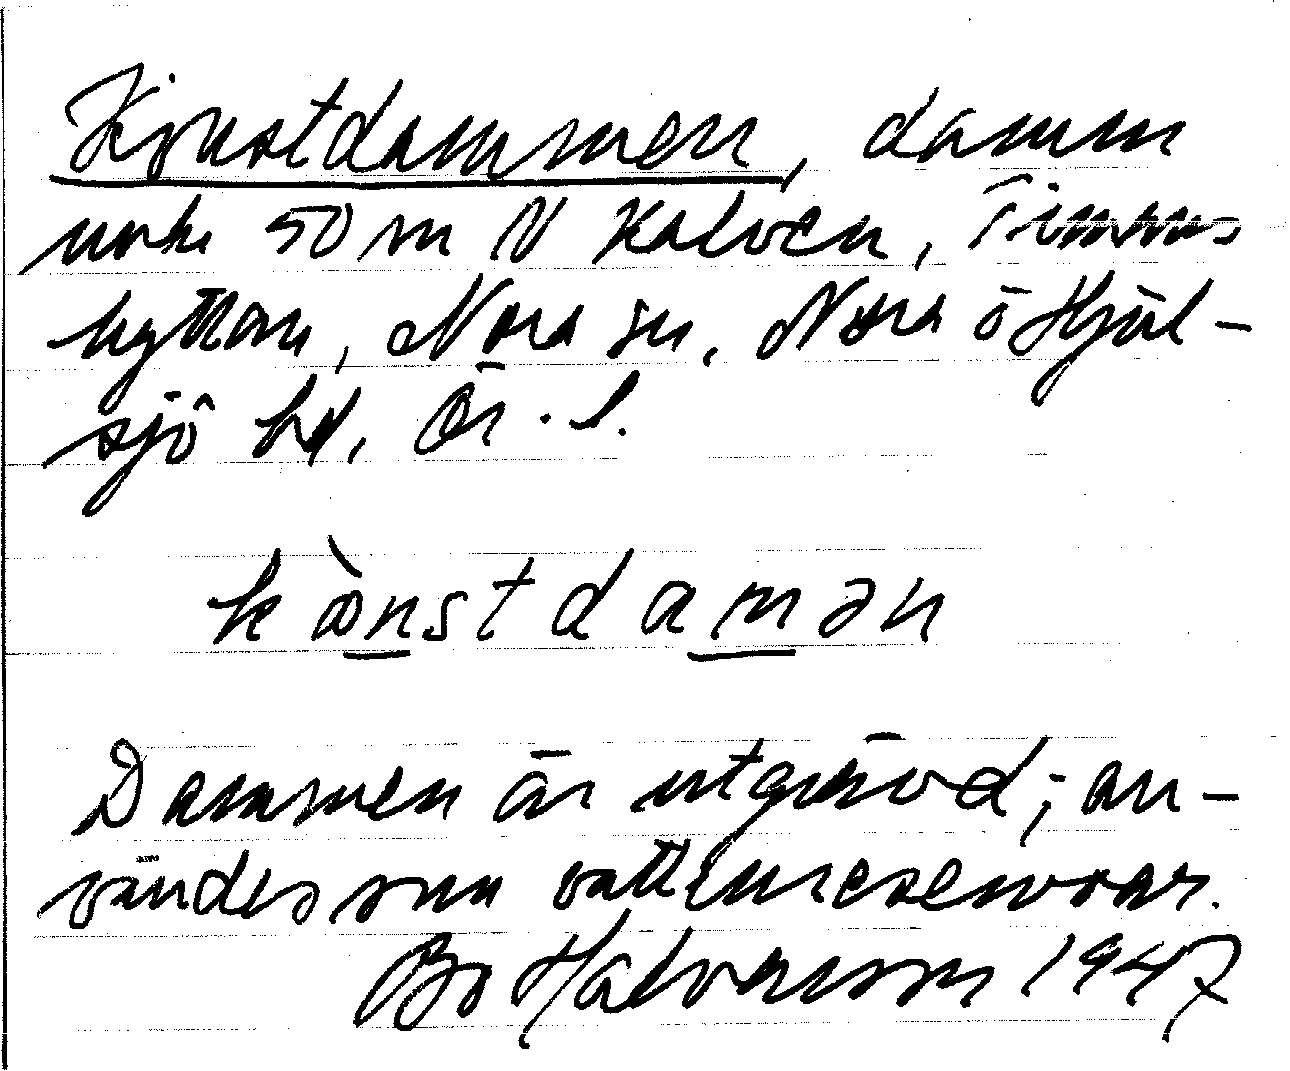 Konstdammen, damm
unke 50 m N Kalven, Timmer
hyttan, Nora sn, Nora o Hjul-
sjö bd, Ör. l.
kònstdamən
Dammen är utgrävd; an-
vändes som vattenreservoar.
Bo Halvarsson 1947